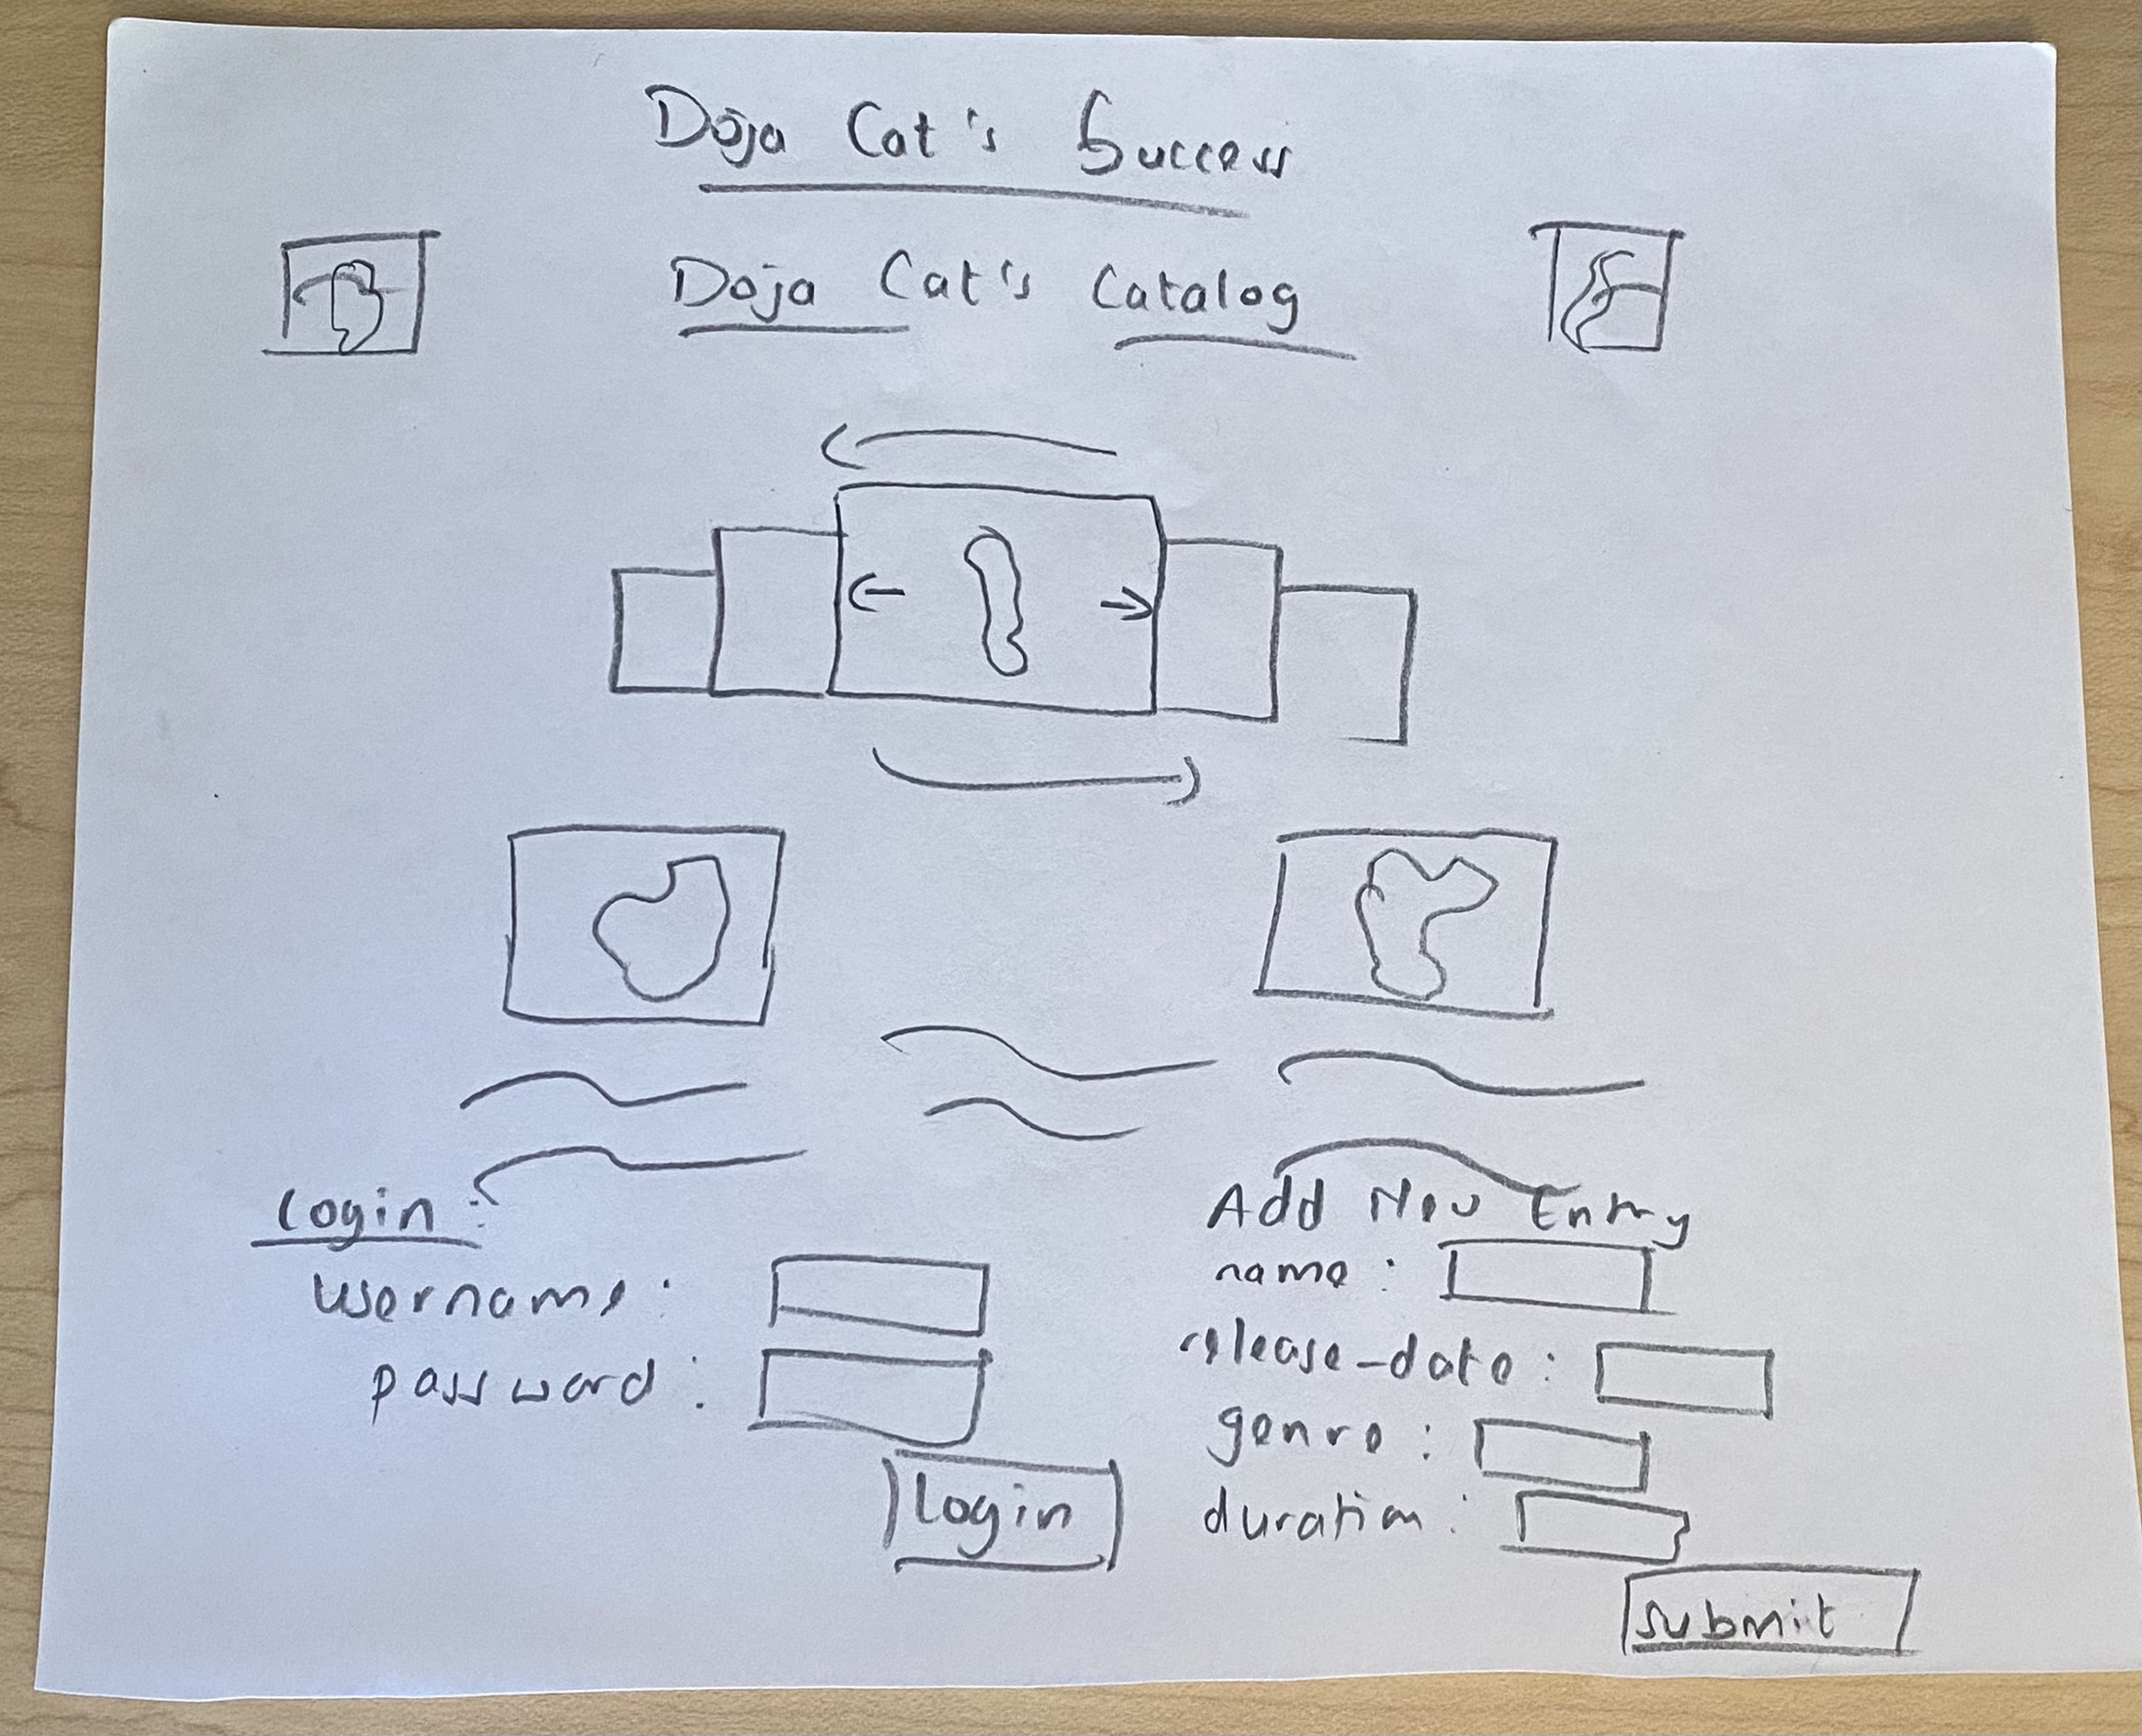 Doja Cat's Success
Doja Cat's Catalog
Login:
username:
password:
Login
Add New Entry
name:
release-date:
genre:
duration:
submit